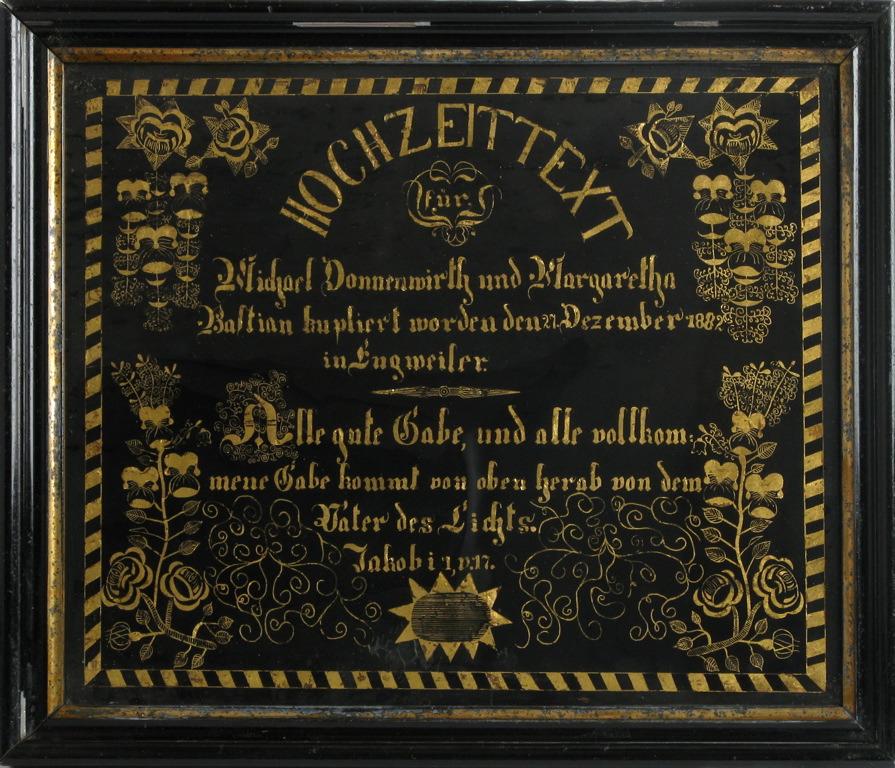 HOCHZEITTEXT
für
Michael Donnenwirth und Margaretha
Bastian kupliert worden den 27. Dezember 1887
in Engweiler.
Alle gute Gabe, und alle vollkom-
mene Gabe kommt von oben herab von dem
Vater des Lichts.
Jakobi 1, v. 17.